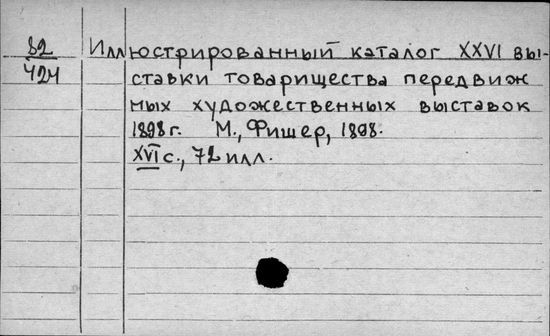 82 Иллюстрированный каталог XXVI вы-
424 ставки товарищества передвиж
ных художественных выставок
1898 г. М., Фишер, 1898.
XVI с., 72 илл.